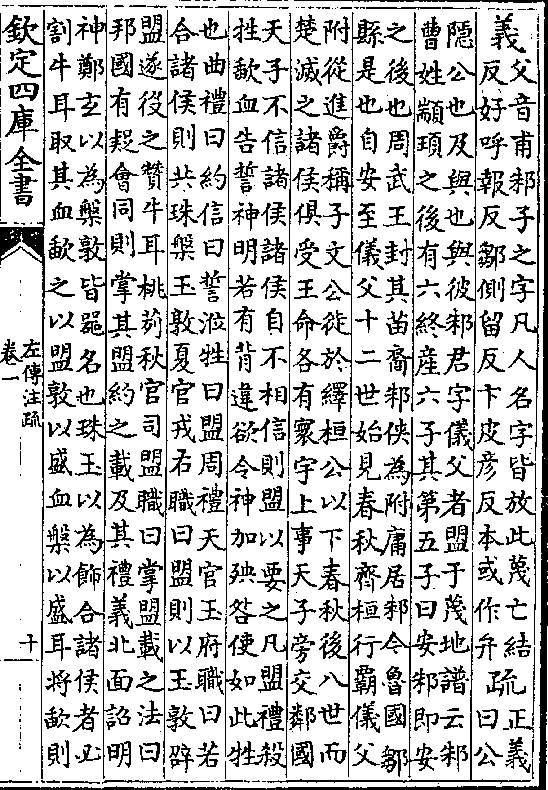 義父音甫邾子之字凡人名字皆放此蔑亡結
反好呼報反鄒側留反卞皮彦反本或作弁
疏正義
曰公
隱公也及與也與彼邾君字儀父者盟于蔑地譜云邾
曹姓顓頊之後有六終産六子其第五子曰安邾即安
之後也周武王封其苗裔邾俠為附庸居邾今魯國鄒
縣是也自安至儀父十二世始見春秋齊桓行霸儀父
附從進爵稱子文公徙於繹桓公以下春秋後八世而
楚滅之諸侯俱受王命各有寰宇上事天子旁交鄰國
天子不信諸侯諸侯自不相信則盟以要之凡盟禮殺
牲歃血告誓神明若有背違欲令神加殃咎使如此牲
也曲禮曰約信曰誓涖牲曰盟周禮天官玉府職曰若
合諸侯則共珠槃玉敦夏官戎右職曰盟則以玉敦辟
盟遂役之贊牛耳桃茢秋官司盟職曰掌盟載之法曰
邦國有疑會同則掌其盟約之載及其禮義北面詔明
神鄭玄以為槃敦皆器名也珠玉以為飾合諸侯者必
割牛耳取其血歃之以盟敦以盛血槃以盛耳將歃則
欽定四庫全書
左傳注疏
卷一
十